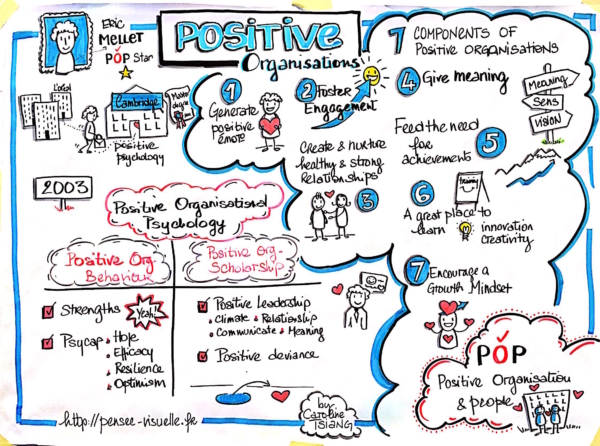 Eric
MELLET
POP Star
POSITIVE
Organisations
7 COMPONENTS OF
Positive ORGANISATIONS
L'Oréal
Cambridge
Master
degree
positive
psychology
1
Generate
positive
émote
2 Foster
Engagement
Create & nurture
healthy & strong
Relationships
3
4 Give meaning
Meaning
Sens
Vision
Feed the need
for
achievements
5
6
A great place to
learn
innovation
creativity
7 Encourage a
Growth Mindset
2003
Positive Organisational
Psychology
Positive Org
Behaviour
Strengths
Yeah!
Psycap
Hope
Efficacy
Resilience
Optimism
Positive Org-
Scholarship
Positive leadership
Climate & Relationship
Communicate & Meaning
Positive deviance
POP
Positive Organisation
& people
by
Caroline
TSIANG
http://pensee-visuelle.fr